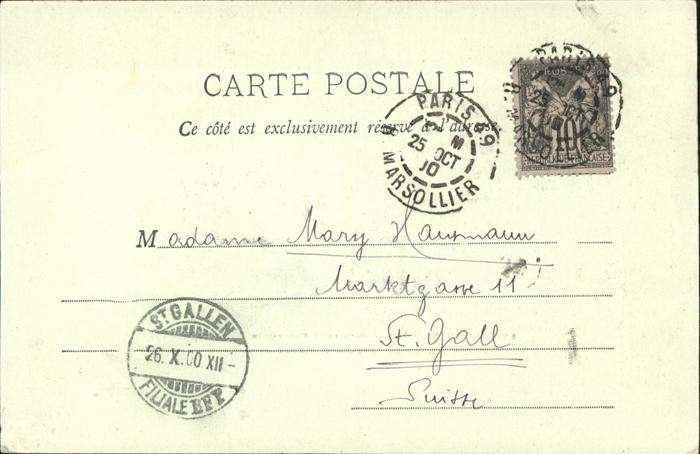 CARTE POSTALE
Ce côté est exclusivement réservé à l'adresse
PARIS 49
M
25 OCT
00
R. MARSOLLIER
10
Madame Mary Hausmann
Marktgasse 11
St. Gall
Suisse
ST GALLEN
26. X. 00 XII-
FILIALE BFP